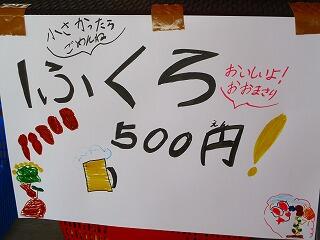 小さかったら
ごめんね
1ふくろ
おいしいよ!
おおまさり
500円!
えん